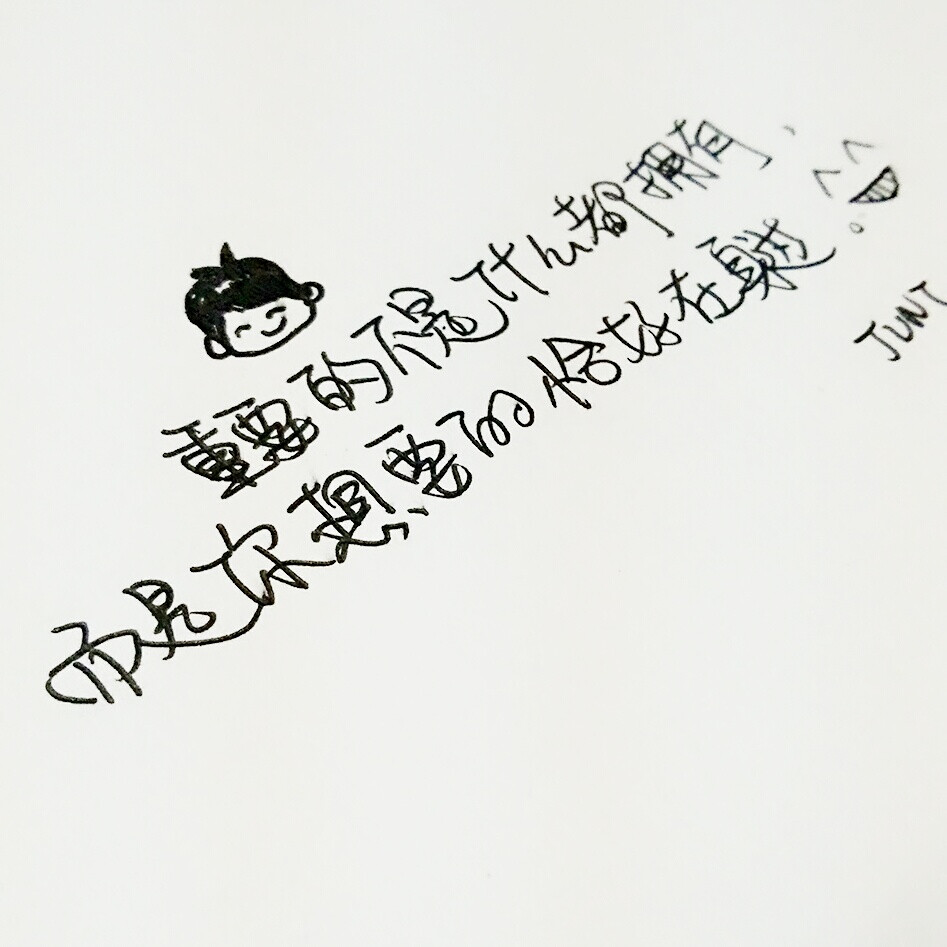 重要的不是什么都拥有，
而是你想要的恰好在身边。
JUNT